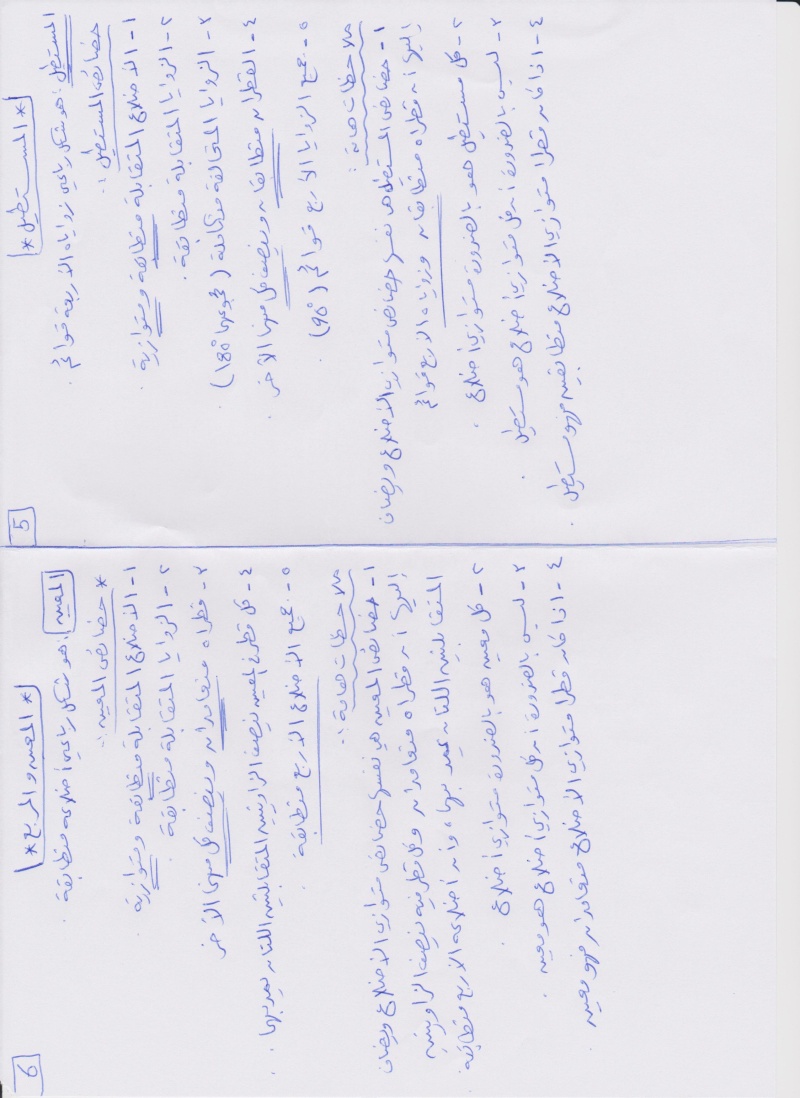 5
* المستطيل *
المستطيل : هو شكل رباعي زواياه الأربعة قوائم .
خصائص المستطيل :
١- الأضلاع المتقابلة متطابقة ومتوازية .
٢- الزوايا المتقابلة متطابقة .
٣- الزوايا المتحالفة متكاملة ( مجموعها 180° )
٤- القطران متطابقان وينصف كل منهما الآخر .
٥- جميع الزوايا الأربع قوائم ( 90° ) .
ملاحظات هامة :
١- خصائص المستطيل هي نفسها خصائص متوازي الأضلاع ويضاف
إليها أن قطراه متطابقان وزواياه الأربع قوائم
٢- كل مستطيل هو بالضرورة متوازي أضلاع .
٣- ليس بالضرورة أن كل متوازي أضلاع هو مستطيل .
٤- اذا كان قطرا متوازي الأضلاع متطابقين فهو مستطيل .
6
* المعين والمربع *
المعين : هو شكل رباعي أضلاعه متطابقة .
* خصائص المعين :
١- الأضلاع المتقابلة متطابقة ومتوازية .
٢- الزوايا المتقابلة متطابقة .
٣- قطراه متعامدان وينصف كل منهما الآخر .
٤- كل قطر في المعين ينصف الزاويتين المتقابلتين اللتان يمر بهما .
٥- جميع الأضلاع الأربع متطابقة .
ملاحظات هامة :
١- خصائص المعين هي نفسها خصائص متوازي الأضلاع ويضاف
إليها أن قطراه متعامدان وكل قطر فيه ينصف الزاويتين
المتقابلتين اللتان يمر بهما وأن أضلاعه الأربع متطابقة
٢- كل معين هو بالضرورة متوازي أضلاع .
٣- ليس بالضرورة أن كل متوازي أضلاع هو معين .
٤- اذا كان قطرا متوازي الأضلاع متعامدان فهو معين .